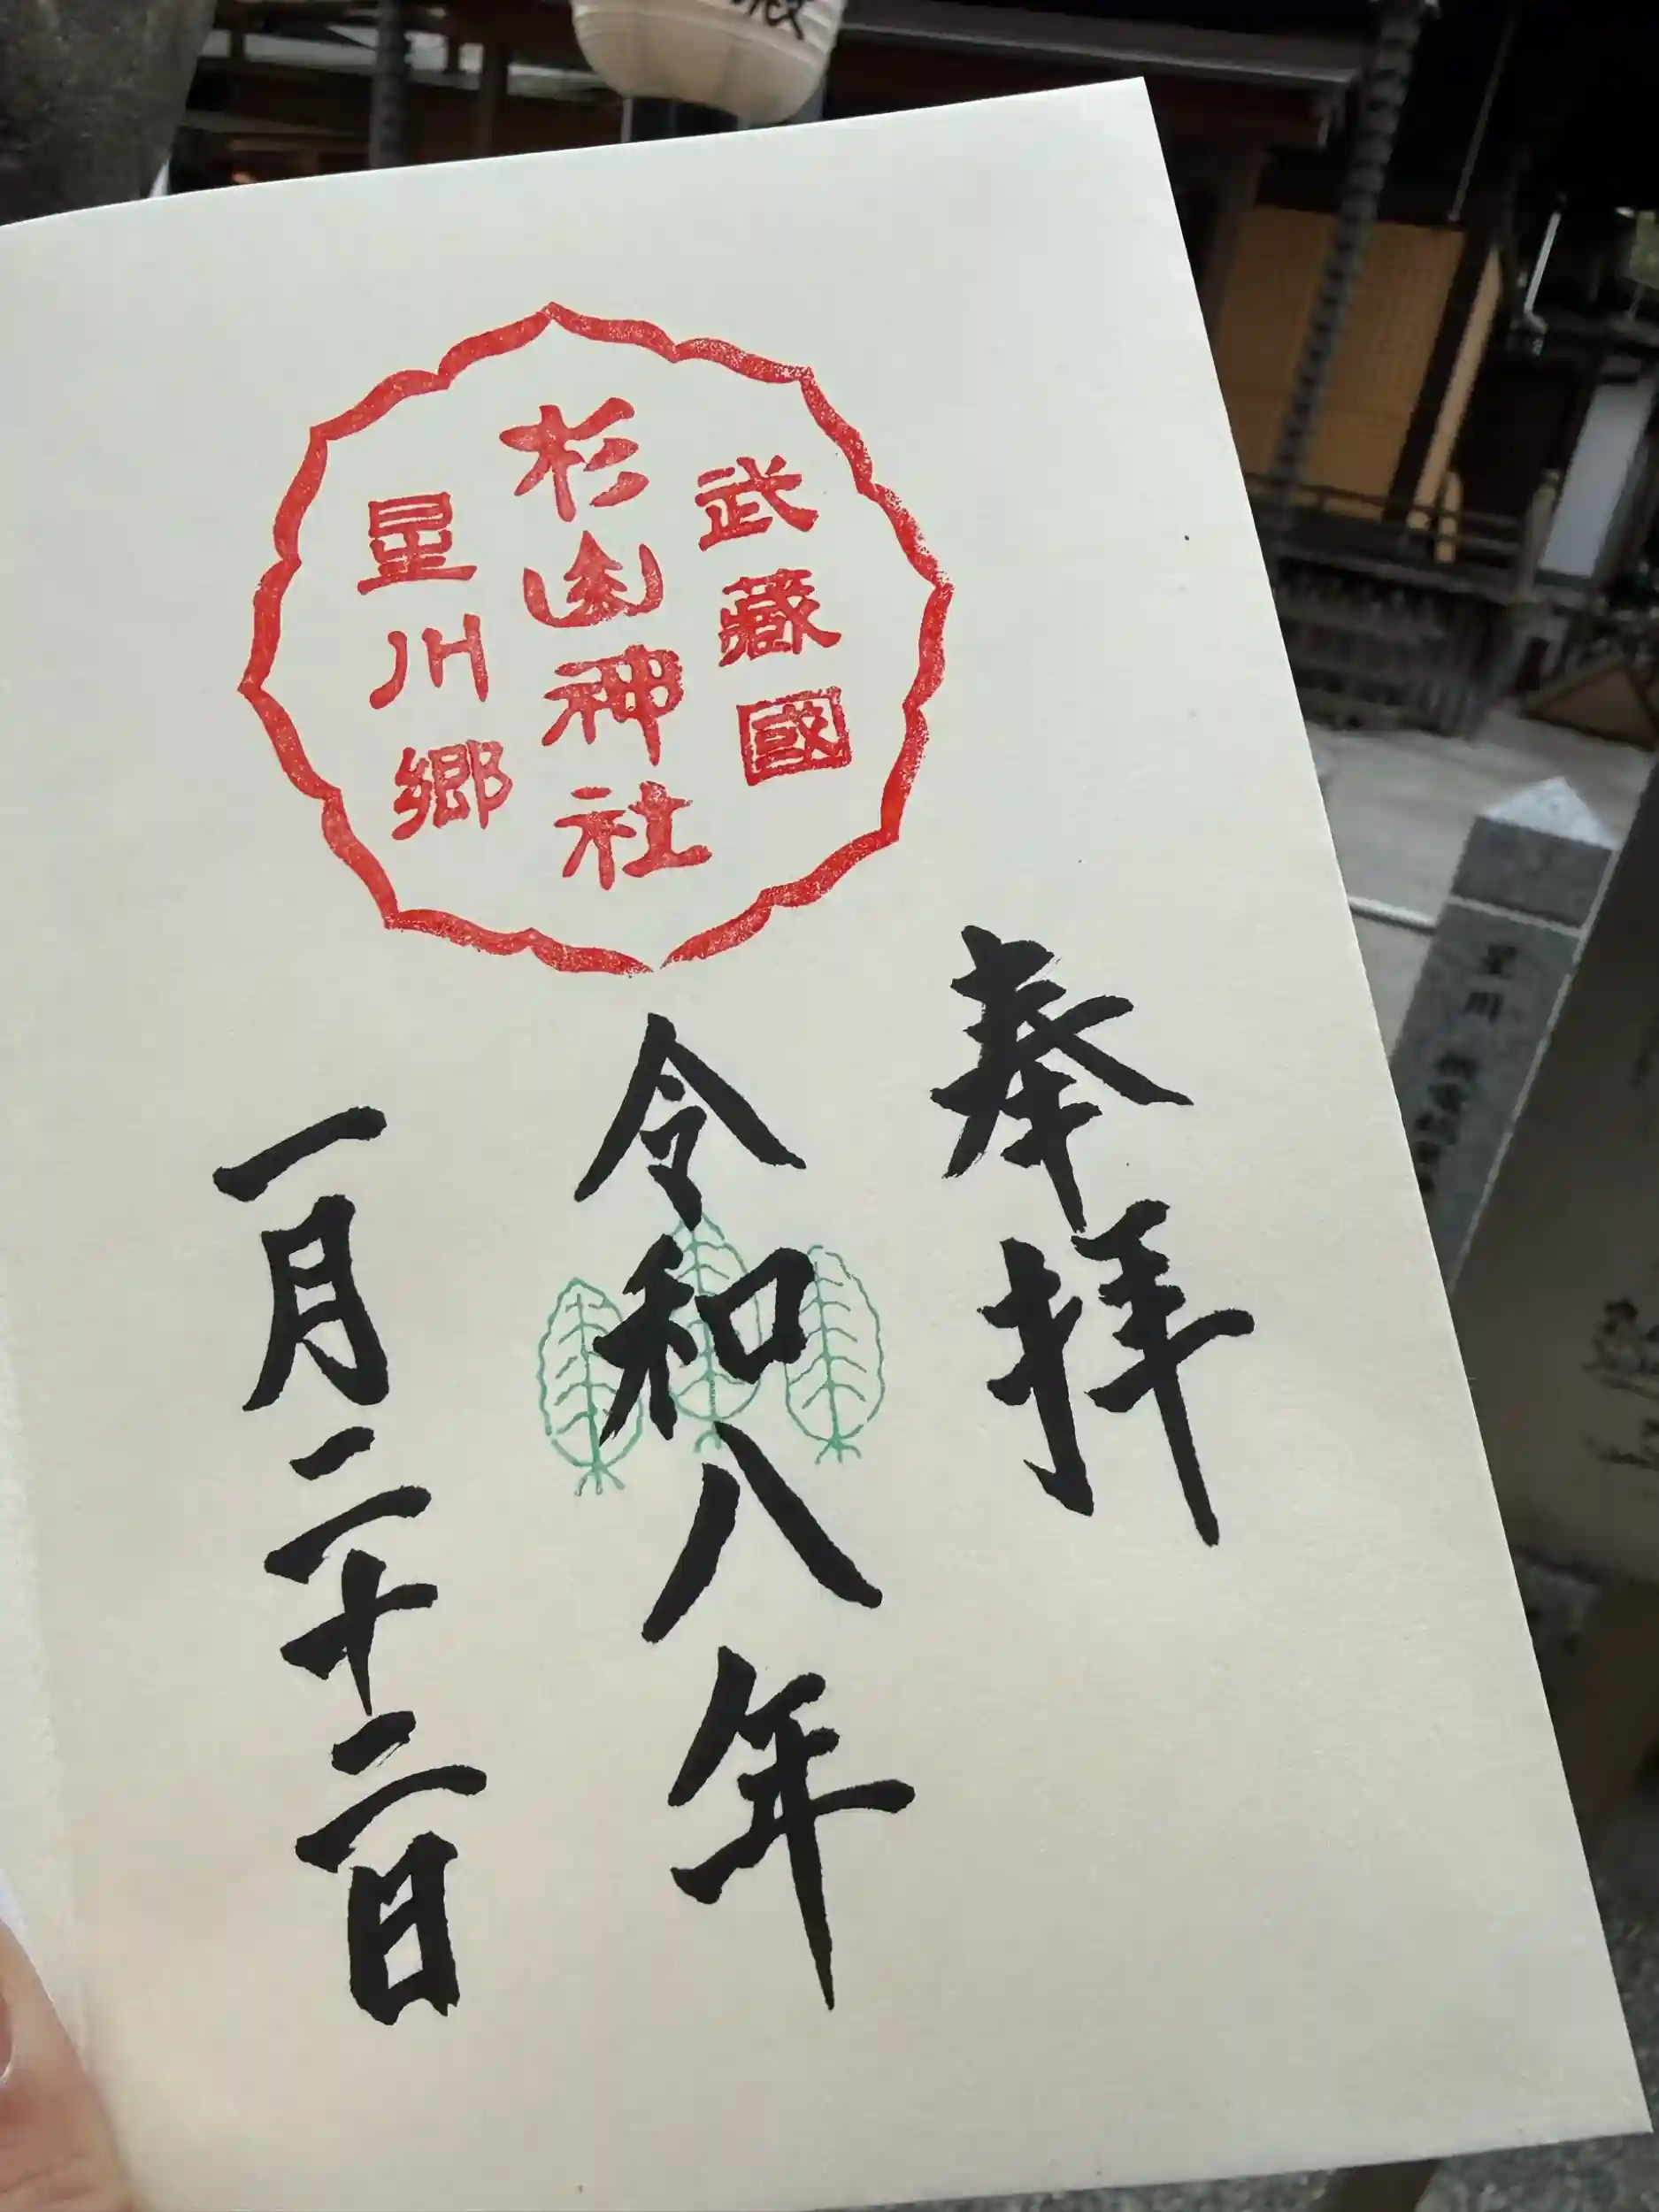 武藏國
杉山神社
星川郷
奉拝
令和八年
一月二十二日
星川